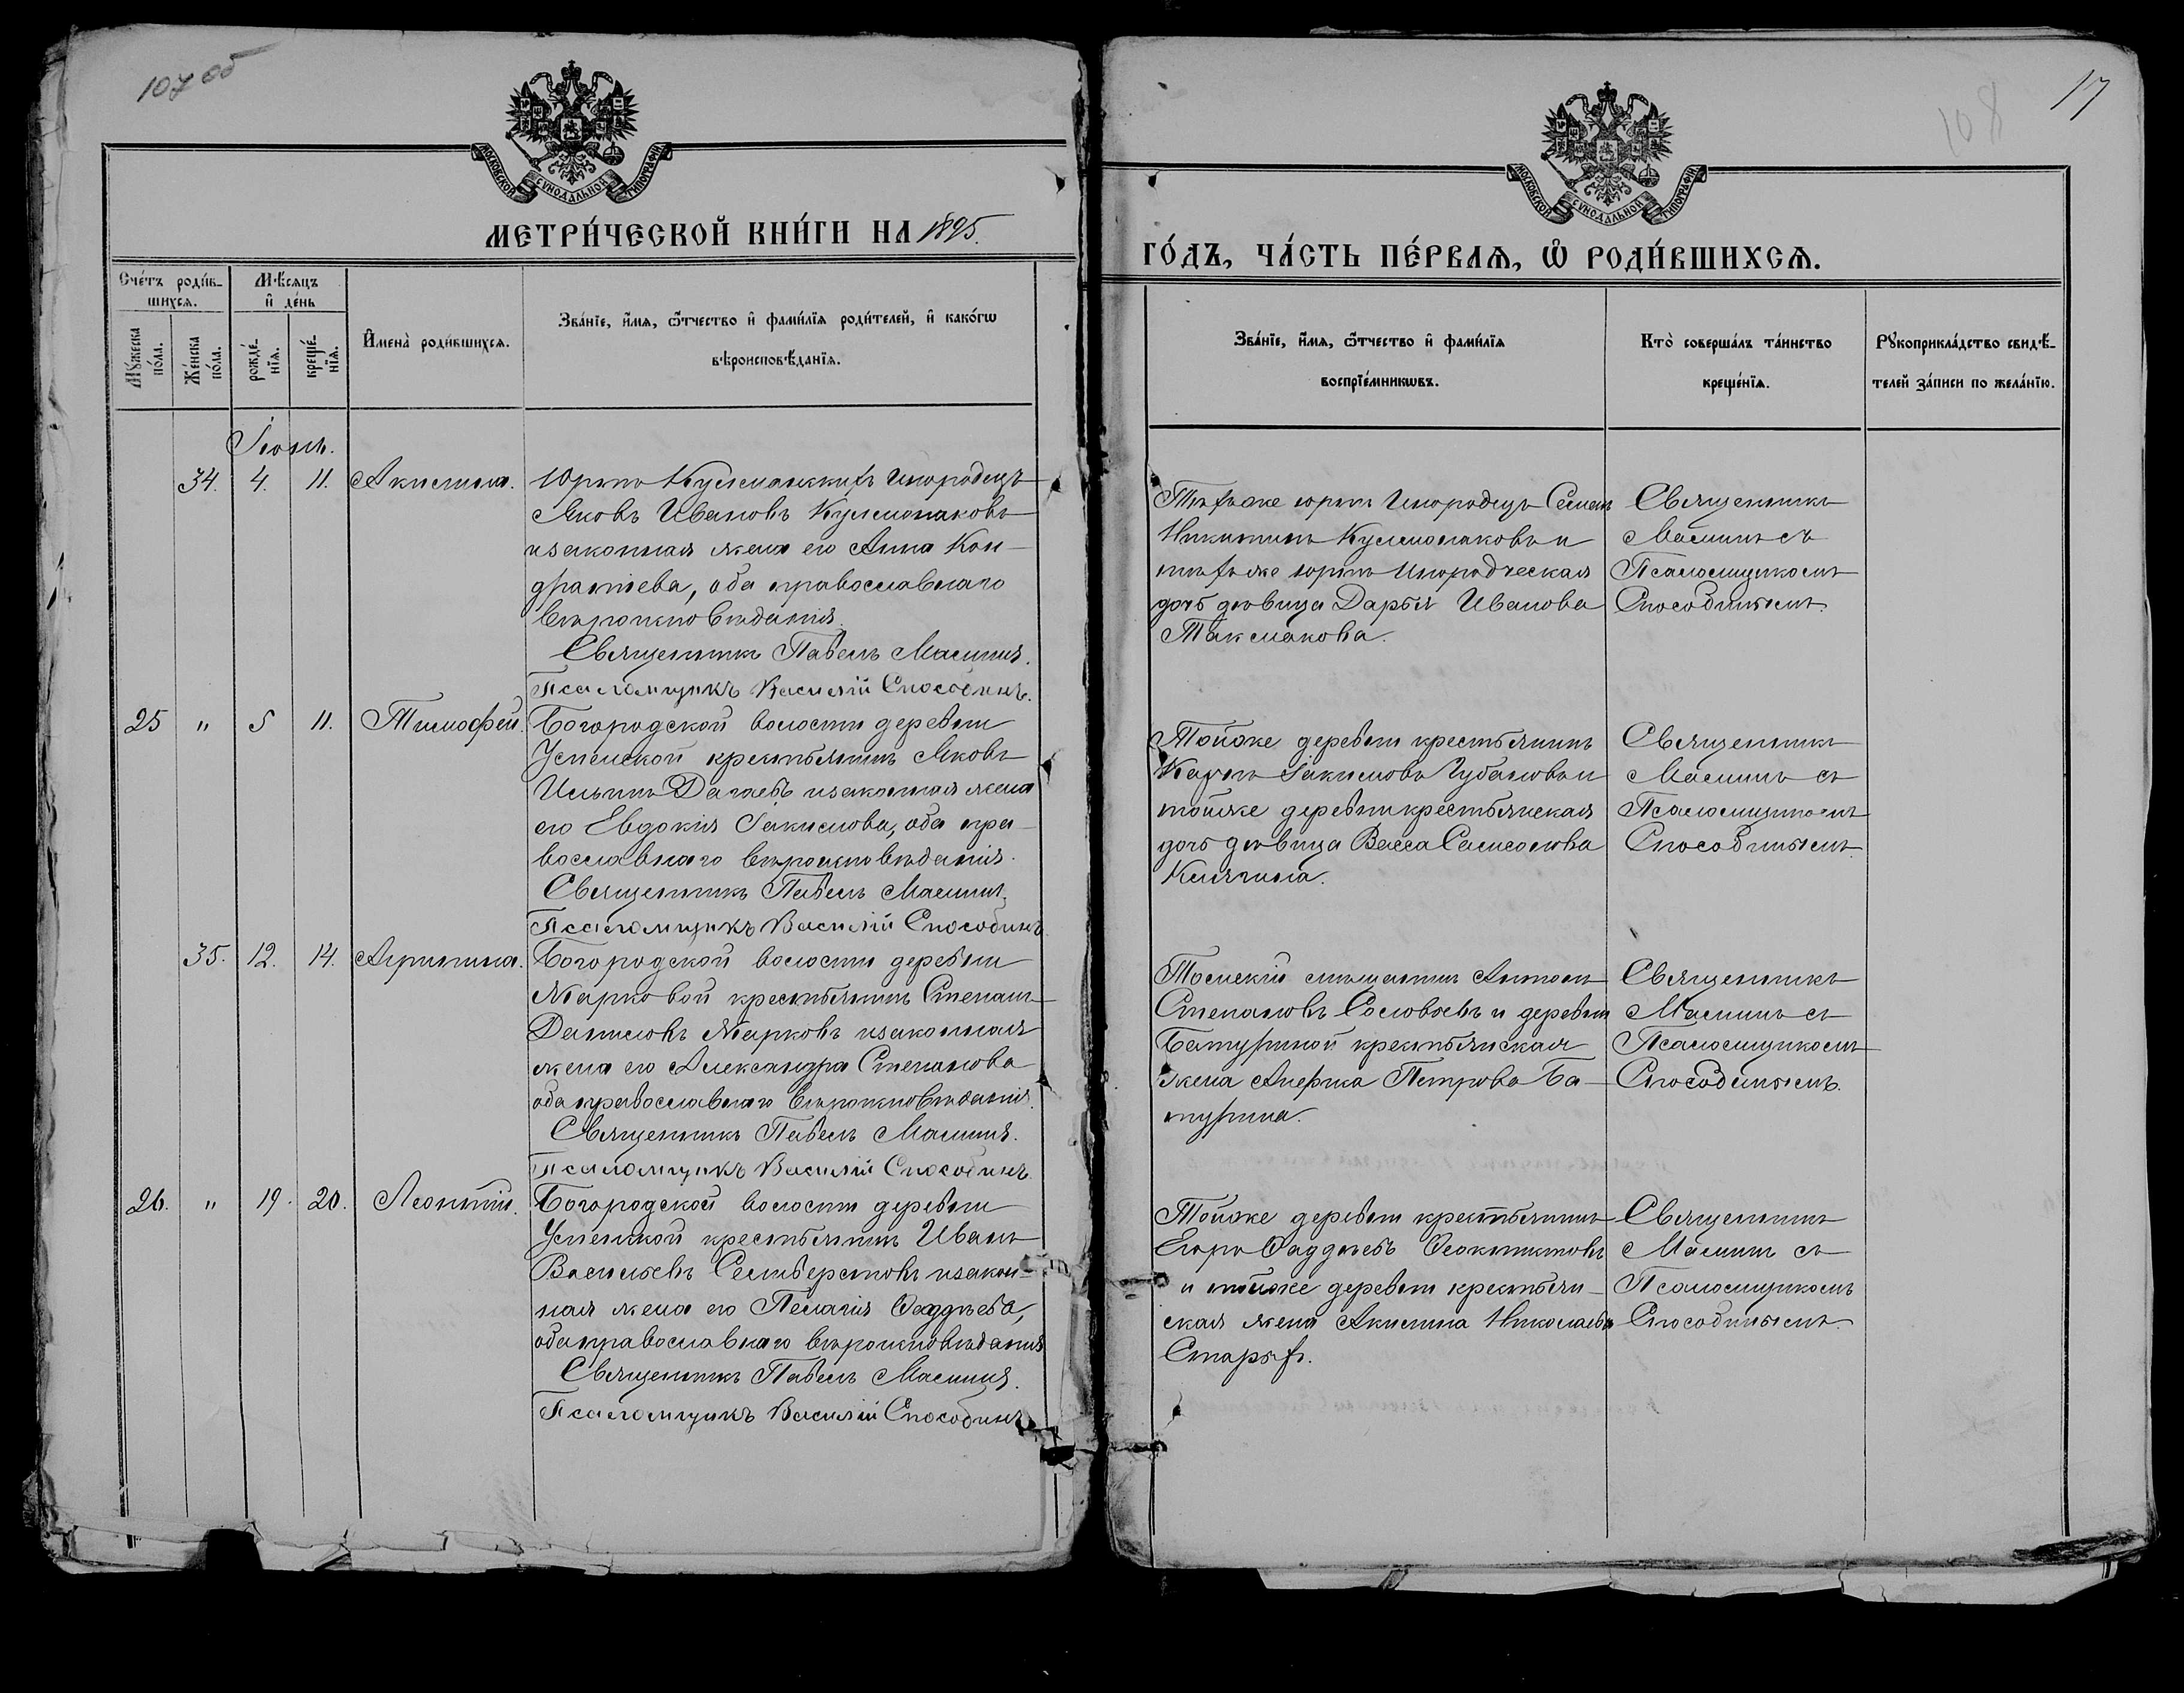 107 об
МОСКОВСКОЙ СѴНОДАЛЬНОЙ ТИПОГРАФІИ
МЕТРИ́ЧЕСКОЙ КНИ́ГИ НА 1895.
Сче́тъ роди́в-
шихсѧ.
Мѣ́сѧцъ
и҆ де́нь
Мꙋ́жеска по́ла.
Же́нска по́ла.
рожде́-
нїѧ.
креще́-
нїѧ.
И҆мена̀ роди́вшихсѧ.
Зва́нїе, и҆́мѧ, ѻ҆́тчество и҆ фами́лїѧ роди́телей, и҆ како́гѡ
вѣроисповѣ́данїѧ.
Іюнь.
34. 4. 11. Акилина. Юртъ Кулманскихъ Инородецъ
Яковъ Ивановъ Кулманаковъ
и законная жена его Анна Кон-
дратіева, оба православнаго
вѣроисповѣданія.
Священникъ Павелъ Маминъ.
Псаломщикъ Василій Способинъ.
25 " 5 11. Тимофей. Богородской волости деревни
Успенской крестьянинъ Яковъ
Ильинъ Дагаевъ и законная жена
его Евдокія Іакимова, оба пра-
вославнаго вѣроисповѣданія.
Священникъ Павелъ Маминъ.
Псаломщикъ Василій Способинъ.
35. 12. 14. Агрипина. Богородской волости деревни
Марковой крестьянинъ Степанъ
Даниловъ Марковъ и законная
жена его Александра Степанова
оба православнаго вѣроисповѣданія.
Священникъ Павелъ Маминъ.
Псаломщикъ Василій Способинъ.
26. " 19. 20. Леонтій. Богородской волости деревни
Успенской крестьянинъ Иванъ
Васильевъ Селиверстовъ и закон-
ная жена его Пелагія Ѳаддѣева,
оба православнаго вѣроисповѣданія
Священникъ Павелъ Маминъ.
Псаломщикъ Василій Способинъ
17
108
МОСКОВСКОЙ СѴНОДАЛЬНОЙ ТИПОГРАФІИ
ГО́ДЪ, ЧА́СТЬ ПЕ́РВАѦ, Ѡ҆ РОДИ́ВШИХСѦ.
Зва́нїе, и҆́мѧ, ѻ҆́тчество и҆ фами́лїѧ
воспрїе́мникѡвъ.
Кто̀ соверша́лъ та́инство
креще́нїѧ.
Рꙋкоприкла́дство свидѣ́-
телей за́писи по жела́нїю.
Тѣхъ же юртъ Инородецъ Семенъ
Никитинъ Кулманаковъ и
тѣхъ же юртъ Инородческая
дочь дѣвица Дарья Иванова
Такмакова.
Священникъ
Маминъ съ
Псаломщикомъ
Способинымъ.
Той же деревни крестьянинъ
Карпъ Іакимовъ Губановъ и
той же деревни крестьянская
дочь дѣвица Васса Самсонова
Калягина.
Священникъ
Маминъ съ
Псаломщикомъ
Способинымъ.
Томскій мѣщанинъ Антонъ
Степановъ Соловьевъ и деревни
Батуриной крестьянская
жена Петрова Ба-
турина.
Священникъ
Маминъ съ
Псаломщикомъ
Способинымъ.
Той же деревни крестьянинъ
Егоръ Ѳаддѣевъ Ѳеоктистовъ
и той же деревни крестьян-
ская жена Акилина Николаева
Старыхъ.
Священникъ
Маминъ съ
Псаломщикомъ
Способинымъ.